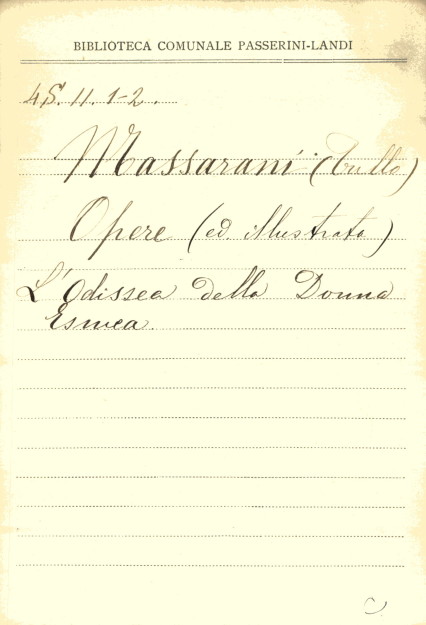 BIBLIOTECA COMUNALE PASSERINI-LANDI
4S. 11. 1-2.
Massarani (Tullo)
Opere (ed. illustrata)
L'Odissea della Donna
Esmea.